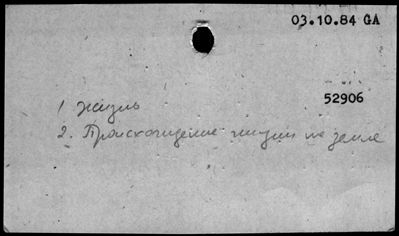 03.10.84 GA
52906
1 Жизнь
2. Происхождение жизни на земле